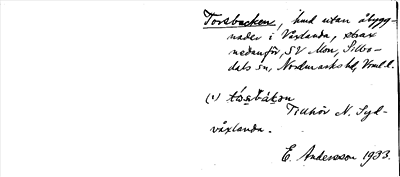 Torsbacken, hmd utan åbygg-
nader i Växlanda, strax
nedanför, SV Mon, Sillbo-
dals sn, Nordmarks hd, Vrml. l.
(1) tɷ́s̱bákɷn
Tillhör N. Syd-
växlanda.
E. Andersson 1933.